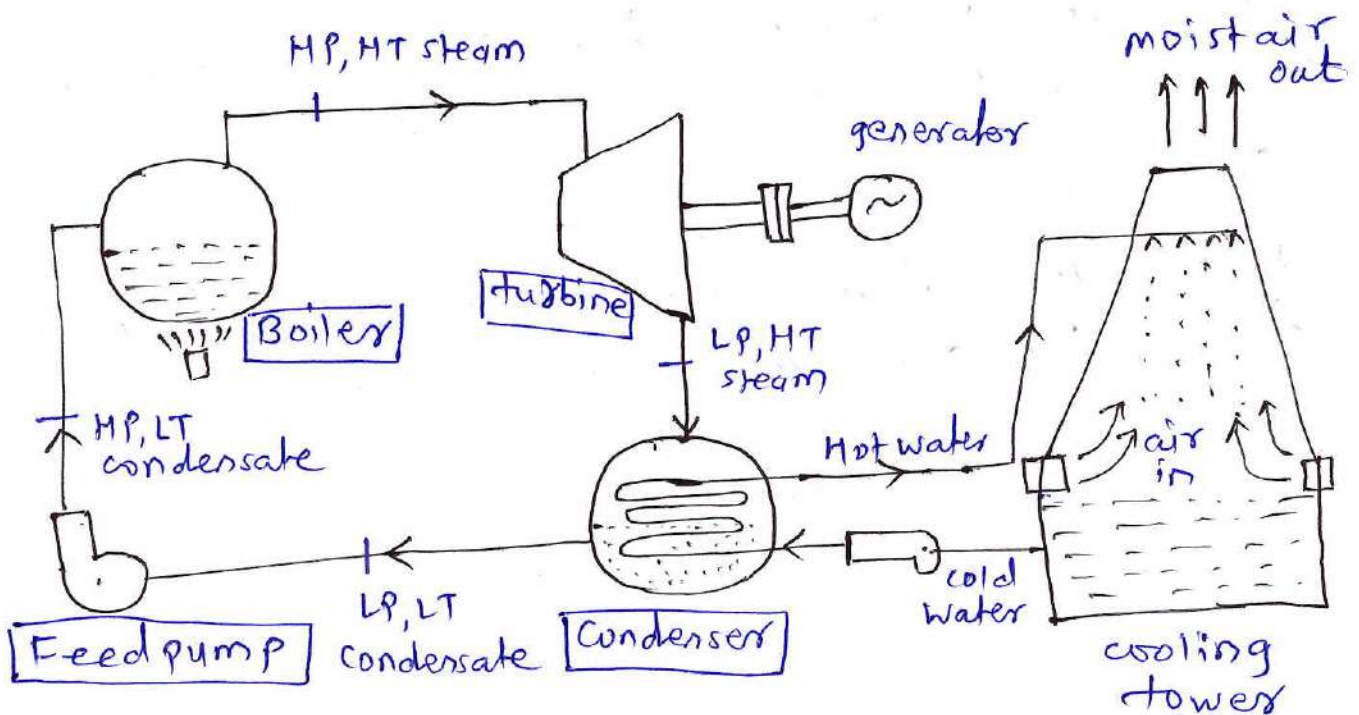 HP, HT steam
moist air
out
generator
~
turbine
Boiler
LP, HT
steam
HP, LT
condensate
Hot water
air
in
cold
water
LP, LT
condensate
Feed pump
Condenser
cooling
tower